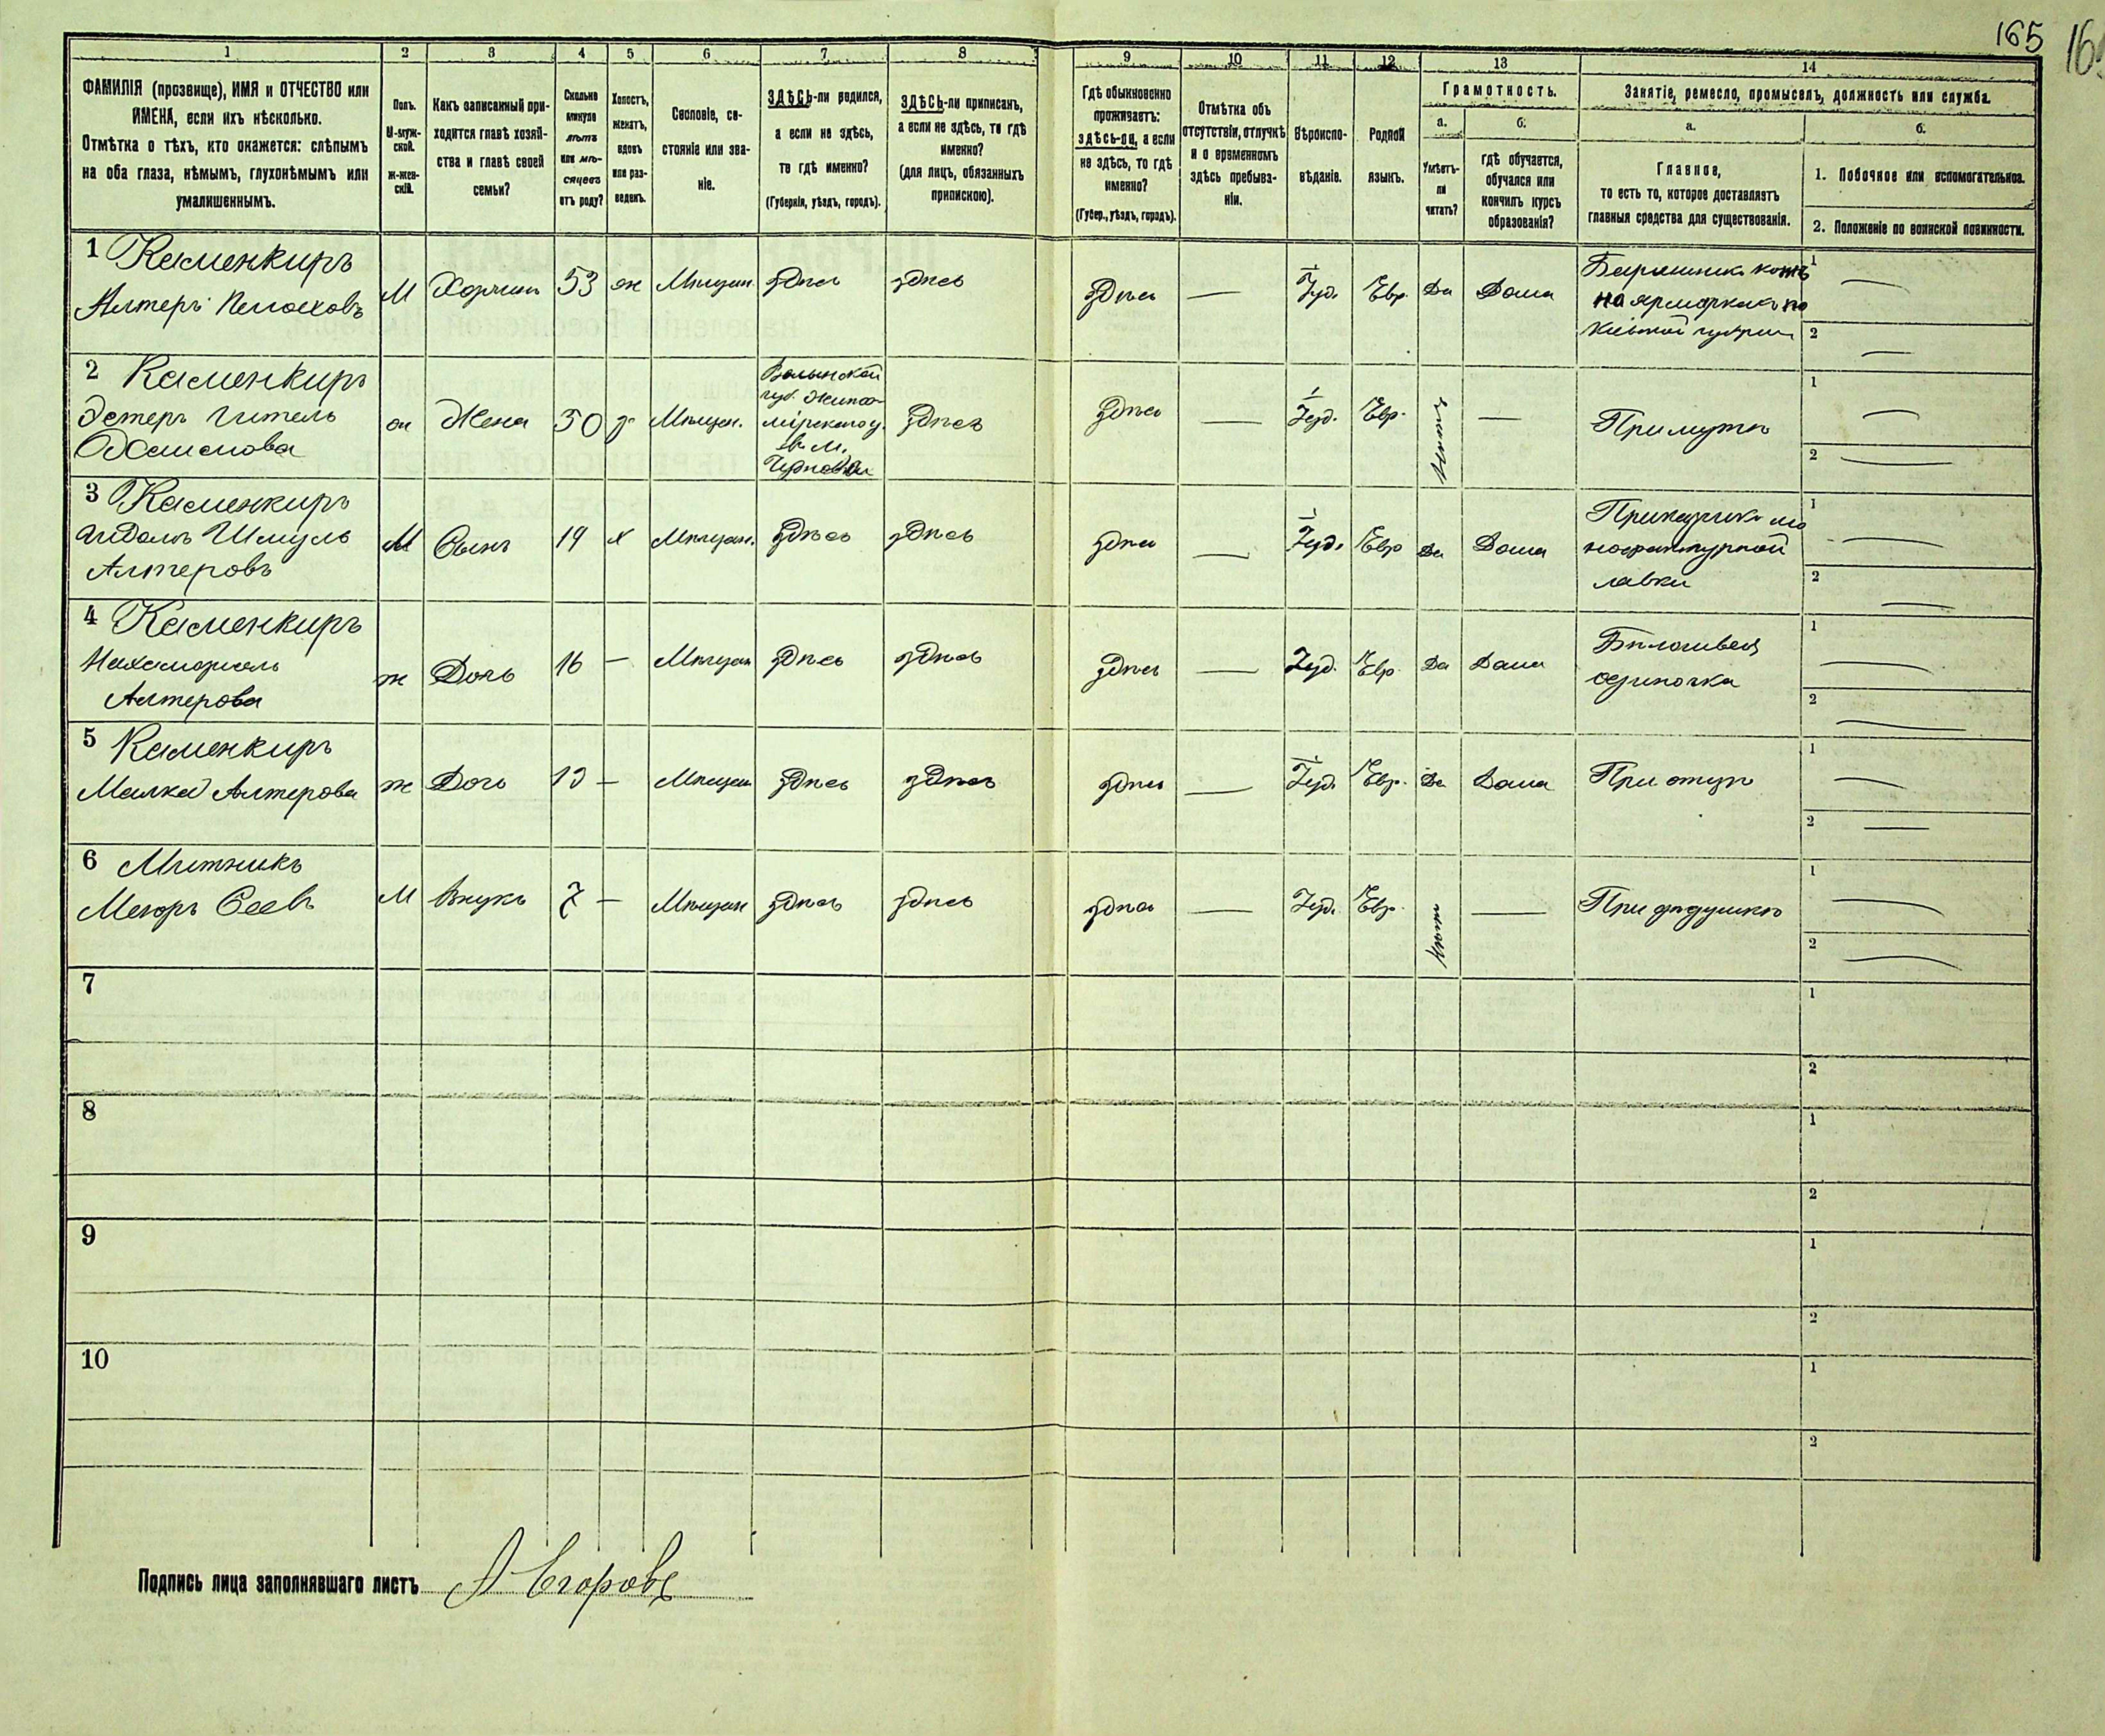 165
1
2
3
4
5
6
7
8
9
10
11
12
13
14
ФАМИЛІЯ (прозвище), ИМЯ и ОТЧЕСТВО или
ИМЕНА, если ихъ нѣсколько.
Отмѣтка о тѣхъ, кто окажется: слѣпымъ
на оба глаза, нѣмымъ, глухонѣмымъ или
умалишеннымъ.
Полъ.
М-муж-
ской.
Ж-жен-
скій.
Какъ записанный при-
ходится главѣ хозяй-
ства и главѣ своей
семьи?
Сколько
минуло
лѣтъ
или мѣ-
сяцевъ
отъ роду?
Холостъ,
женатъ,
вдовъ
или раз-
веденъ.
Сословіе, со-
стояніе или зва-
ніе.
ЗДѢСЬ-ли родился,
а если не здѣсь,
то гдѣ именно?
(Губернія, уѣздъ, городъ).
ЗДѢСЬ-ли приписанъ,
а если не здѣсь, то гдѣ
именно?
(для лицъ, обязанныхъ
припискою).
Гдѣ обыкновенно
проживаетъ:
здѣсь-ли, а если
не здѣсь, то гдѣ
именно?
(Губер., уѣздъ, городъ).
Отмѣтка объ
отсутствіи, отлучкѣ
и о временномъ
здѣсь пребыва-
ніи.
Вѣроиспо-
вѣданіе.
Родной
языкъ.
Грамотность.
а.
б.
Умѣетъ-
ли
читать?
гдѣ обучается,
обучался или
кончилъ курсъ
образованія?
Занятіе, ремесло, промыселъ, должность или служба.
а.
б.
Главное,
то есть то, которое доставляетъ
главныя средства для существованія.
1. Побочное или вспомогательное.
2. Положеніе по воинской повинности.
1 Каменкиръ
Алтеръ
М
53
ж
Мѣщан.
здѣсь
здѣсь
здѣсь
—
Іуд.
Евр.
Да
Дома
на ярмаркахъ по
1 —
2 —
2 Каменкиръ
Эстеръ Гитель
Жена
50
з
Мѣщан.
Волынской
губ. Жито-
мірскаго у.
въ м.
здѣсь
здѣсь
—
Іуд.
Евр.
нѣтъ
—
При мужѣ
1 —
2 —
3 Каменкиръ
Шмуль
Алтеровъ
М
Сынъ
19
х
Мѣщан.
здѣсь
здѣсь
здѣсь
—
Іуд.
Евр
Да
Дома
Прикащикъ ма
нофактурной
лавки
1 —
2 —
4 Каменкиръ
Алтерова
ж
Дочь
16
—
Мѣщан
здѣсь
здѣсь
здѣсь
—
Іуд.
Евр.
Да
Дома
Бѣлошвея
одиночка
1 —
2 —
5 Каменкиръ
Малка Алтерова
ж
Дочь
—
Мѣщан
здѣсь
здѣсь
здѣсь
—
Іуд.
Евр.
Да
Дома
При отцѣ
1 —
2 —
6 Митникъ
М
Внукъ
7
—
Мѣщан
здѣсь
здѣсь
здѣсь
—
Іуд.
Евр.
нѣтъ
—
При дѣдушкѣ
1 —
2 —
7
1
2
8
1
2
9
1
2
10
1
2
Подпись лица заполнявшаго листъ А Егоровъ